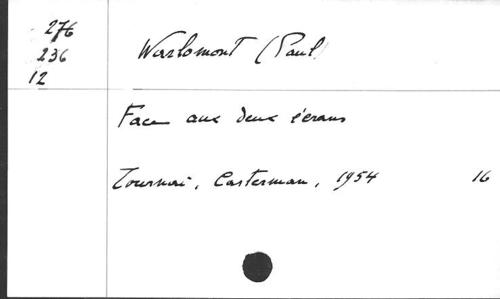 276
236
12
Warlomont (Paul)
Face aux deux écrans
Tournai, Casterman, 1954 16